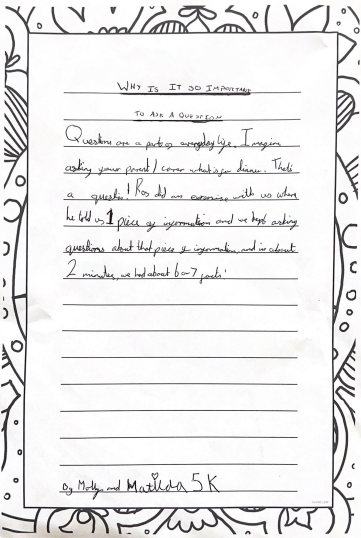 WHY IS IT SO IMPORTANT
TO ASK A QUESTION
Questions are a part of everyday life. Imagine
asking your parent / carer what's for dinner. That's
a question! Ros did an exercise with us where
he told us 1 piece of information and we kept asking
questions about that piece of information, and in about
2 minutes, we had about 6 or 7 facts!
By Molly and Matilda 5K